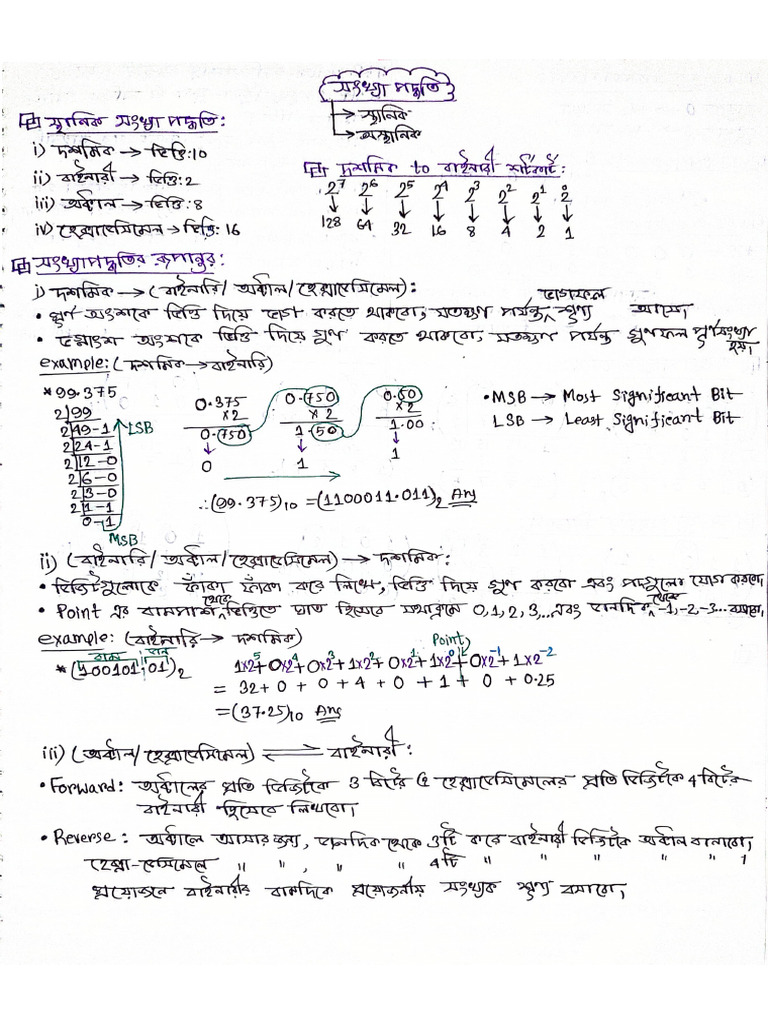 সংখ্যা পদ্ধতি
→ স্থানিক
→ অস্থানিক
স্থানিক সংখ্যা পদ্ধতি:
i) দশমিক → ভিত্তি:10
ii) বাইনারী → ভিত্তি:2
iii) অক্টাল → ভিত্তি:8
iv) হেক্সাডেসিমেল → ভিত্তি:16
দশমিক to বাইনারী শর্টকার্ট:
2⁷ 2⁶ 2⁵ 2⁴ 2³ 2² 2¹ 2⁰
↓ ↓ ↓ ↓ ↓ ↓ ↓ ↓
128 64 32 16 8 4 2 1
সংখ্যাপদ্ধতির রূপান্তর:
i) দশমিক → (বাইনারি/অক্টাল/হেক্সাডেসিমেল):
• পূর্ণ অংশকে ভিত্তি দিয়ে ভাগ করতে থাকবো, যতক্ষণ পর্যন্ত ভাগফল শূণ্য আসে।
• ভগ্নাংশ অংশকে ভিত্তি দিয়ে গুণ করতে থাকবো, যতক্ষণ পর্যন্ত গুণফল পূর্ণসংখ্যা হয়।
example: (দশমিক → বাইনারি)
*99.375
2|99
2|49-1
2|24-1
2|12-0
2|6-0
2|3-0
2|1-1
0-1
LSB
MSB
0.375 0.750 0.50
×2 ×2 ×2
0.750 1.50 1.00
↓ ↓ ↓
0 1 1
∴(99.375)₁₀ = (1100011.011)₂ Ans
• MSB → Most Significant Bit
LSB → Least Significant Bit
ii) (বাইনারি/অক্টাল/হেক্সাডেসিমেল) → দশমিক:
• ডিজিটগুলোকে ফাঁকা ফাঁকা করে লিখে, ভিত্তি দিয়ে গুণ করবো এবং পদগুলো যোগ করবো।
• Point এর বামপাশ থেকে ভিত্তিতে ঘাত হিসেবে যথাক্রমে 0,1,2,3... এবং ডানদিক থেকে -1,-2,-3... বসাবো।
example: (বাইনারি → দশমিক)
বাম ডান
*(100101.01)₂
Point
1×2⁵+0×2⁴+0×2³+1×2²+0×2¹+1×2⁰+0×2⁻¹+1×2⁻²
= 32+0+0+4+0+1+0+0.25
= (37.25)₁₀ Ans
iii) (অক্টাল/হেক্সাডেসিমেল) ⇌ বাইনারী:
• Forward: অক্টালের প্রতি ডিজিটকে 3 বিটের ও হেক্সাডেসিমেলের প্রতি ডিজিটকে 4 বিটের
বাইনারী হিসেবে লিখবো।
• Reverse: অক্টালে আসার জন্য, ডানদিক থেকে 3টি করে বাইনারী ডিজিটকে অক্টাল বানাবো,
হেক্সা-ডেসিমেলে " " , " " 4টি " " " " " ।
প্রয়োজনে বাইনারীর বামদিকে প্রয়োজনীয় সংখ্যক শূণ্য বসাবো,